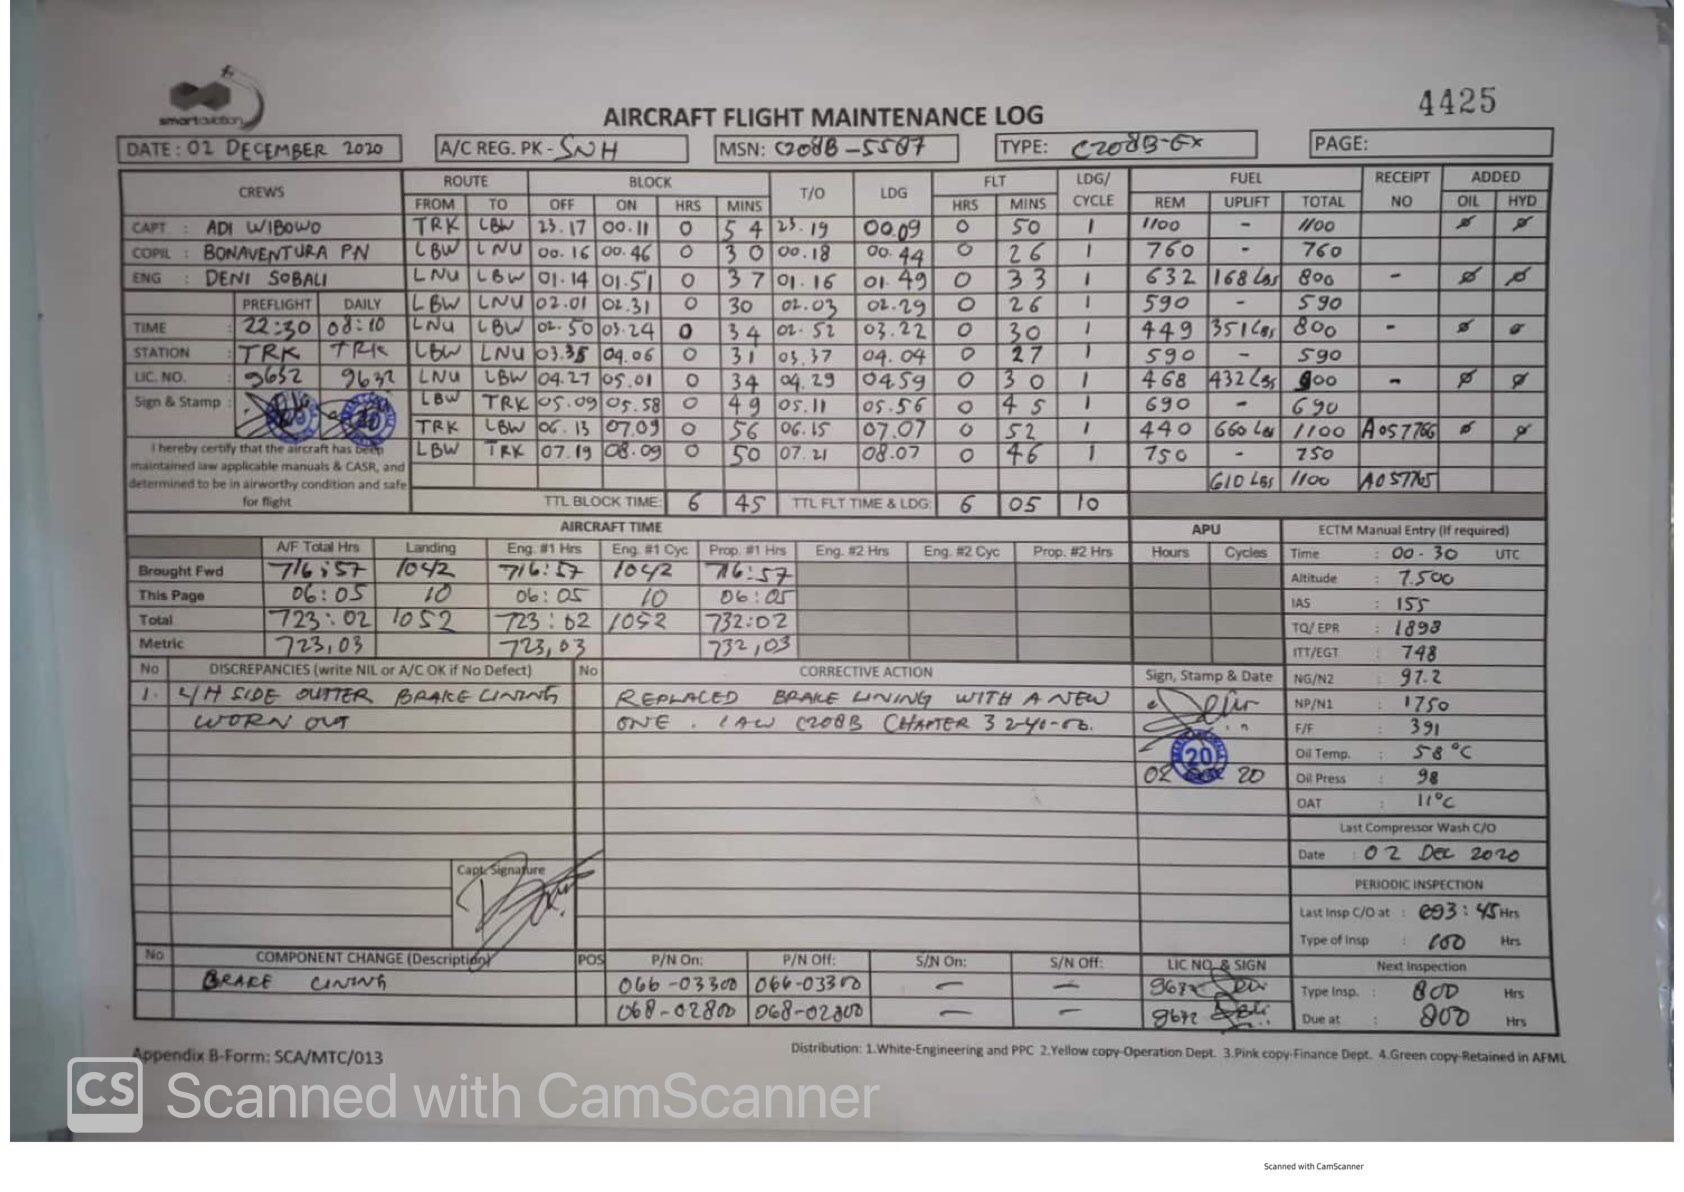 smartaviation
AIRCRAFT FLIGHT MAINTENANCE LOG
4425
DATE: 02 DECEMBER 2020 A/C REG. PK - SNH MSN: C208B-5587 TYPE: C208B-EX PAGE:
CREWS ROUTE BLOCK T/O LDG FLT LDG/ CYCLE FUEL RECEIPT NO ADDED
FROM TO OFF ON HRS MINS HRS MINS REM UPLIFT TOTAL OIL HYD
CAPT : ADI WIBOWO TRK LBW 23.17 00.11 0 54 23.19 00.09 0 50 1 1100 - 1100 ø ø
COPIL : BONAVENTURA PN LBW LNU 00.16 00.46 0 30 00.18 00.44 0 26 1 760 - 760
ENG : DENI SOBALI LNU LBW 01.14 01.51 0 37 01.16 01.49 0 33 1 632 168 Lbs 800 - ø ø
PREFLIGHT DAILY LBW LNU 02.01 02.31 0 30 02.03 02.29 0 26 1 590 - 590
TIME : 22:30 08:10 LNU LBW 02.50 03.24 0 34 02.52 03.22 0 30 1 449 351 Lbs 800 - ø ø
STATION : TRK TRK LBW LNU 03.35 04.06 0 31 03.37 04.04 0 27 1 590 - 590
LIC. NO. : 9632 9632 LNU LBW 04.27 05.01 0 34 04.29 04.59 0 30 1 468 432 Lbs 900 - ø ø
Sign & Stamp : LBW TRK 05.09 05.58 0 49 05.11 05.56 0 45 1 690 - 690
TRK LBW 06.13 07.09 0 56 06.15 07.07 0 52 1 440 660 Lbs 1100 A057766 ø ø
LBW TRK 07.19 08.09 0 50 07.21 08.07 0 46 1 750 - 750
610 LBS 1100 A057765
I hereby certify that the aircraft has been
maintained iaw applicable manuals & CASR, and
determined to be in airworthy condition and safe
for flight
TTL BLOCK TIME: 6 45 TTL FLT TIME & LDG: 6 05 10
AIRCRAFT TIME APU ECTM Manual Entry (If required)
A/F Total Hrs Landing Eng. #1 Hrs Eng. #1 Cyc Prop. #1 Hrs Eng. #2 Hrs Eng. #2 Cyc Prop. #2 Hrs Hours Cycles Time : 00-30 UTC
Brought Fwd 716:57 1042 716:57 1042 716:57 Altitude : 7.500
This Page 06:05 10 06:05 10 06:05 IAS : 155
Total 723:02 1052 723:02 1052 732:02 TQ/ EPR : 1893
Metric 723,03 723,03 732,03 ITT/EGT : 748
No DISCREPANCIES (write NIL or A/C OK if No Defect) No CORRECTIVE ACTION Sign, Stamp & Date NG/N2 : 97.2
1. L/H SIDE OUTTER BRAKE LINING REPLACED BRAKE LINING WITH A NEW NP/N1 : 1750
WORN OUT ONE. IAW C208B CHAPTER 32-40-00. F/F : 391
20
Oil Temp. : 58°C
02 20
Oil Press : 98
OAT : 11°C
Last Compressor Wash C/O
Date : 02 Dec 2020
Capt. Signature
PERIODIC INSPECTION
Last Insp C/O at : 693:45 Hrs
Type of Insp : 100 Hrs
No COMPONENT CHANGE (Description) POS P/N On: P/N Off: S/N On: S/N Off: LIC NO & SIGN Next Inspection
BRAKE LINING 066-03300 066-03300 - - 9632 Type Insp. : 800 Hrs
068-02800 068-02800 - - 9632 Due at : 800 Hrs
Appendix B-Form: SCA/MTC/013
Distribution: 1.White-Engineering and PPC 2.Yellow copy-Operation Dept. 3.Pink copy-Finance Dept. 4.Green copy-Retained in AFML
CS Scanned with CamScanner
Scanned with CamScanner